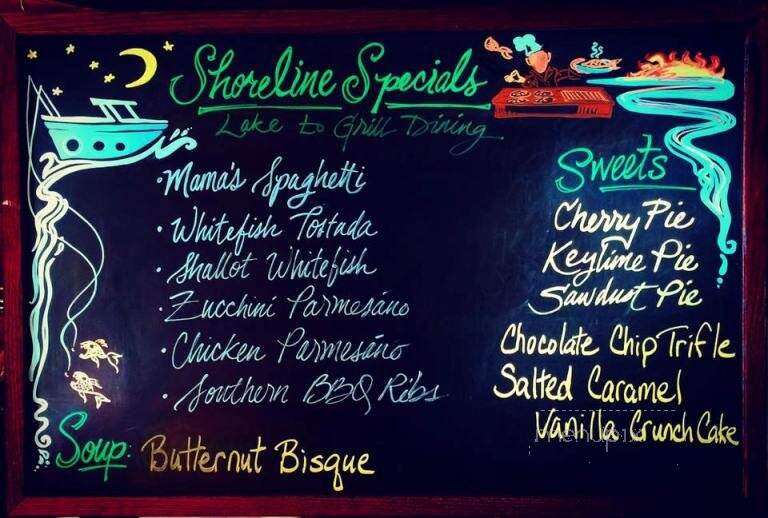 Shoreline Specials
Lake to Grill Dining
· Mama's Spaghetti
· Whitefish Tostada
· Shallot Whitefish
· Zucchini Parmesáno
· Chicken Parmesáno
· Southern BBQ Ribs
Soup: Butternut Bisque
Sweets
Cherry Pie
Keylime Pie
Sawdust Pie
Chocolate Chip Trifle
Salted Caramel
Vanilla Crunch Cake
menupix